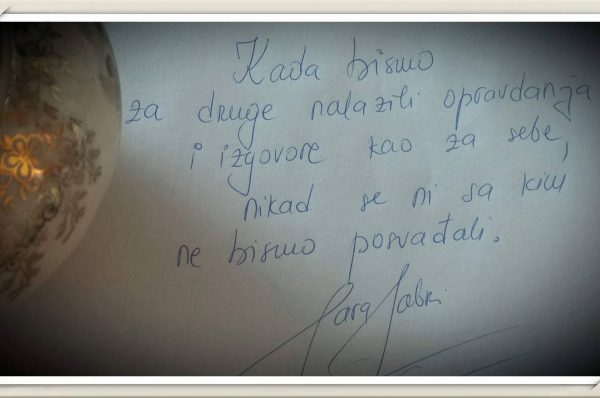 Kada bismo
za druge nalazili opravdanja
i izgovore kao za sebe,
nikad se ni sa kim
ne bismo posvađali.
Sara Sabri